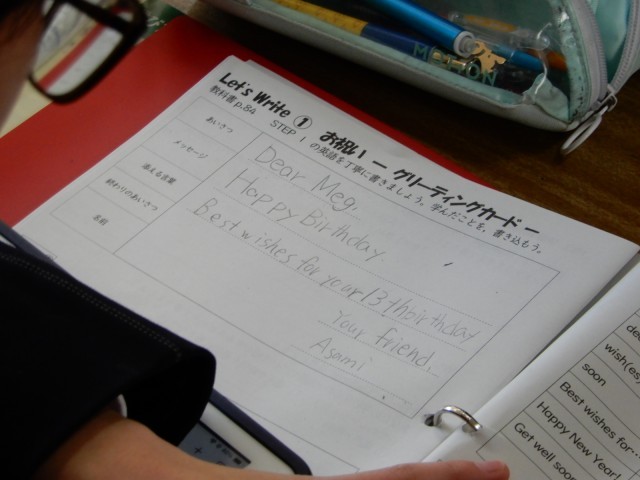 Let's Write ① お祝い － グリーティングカード －
教科書 p.84 STEP 1 の英語を丁寧に書きましょう。学んだことを、書き込もう。
あいさつ
Dear Meg,
メッセージ
Happy Birthday
添える言葉
Best wishes for your 13thbirthday
終わりのあいさつ
Your friend.
名前
Asami
wish(es
soon
Best wishes for...
Happy New Year!
Get well soon